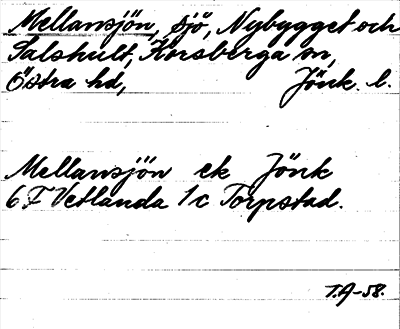 Mellansjön, sjö, Nybygget och
Salshult, Korsberga sn,
Östra hd, Jönk. l.
Mellansjön ek Jönk
6 F Vetlanda 1 c Torpstad.
T.A-58.